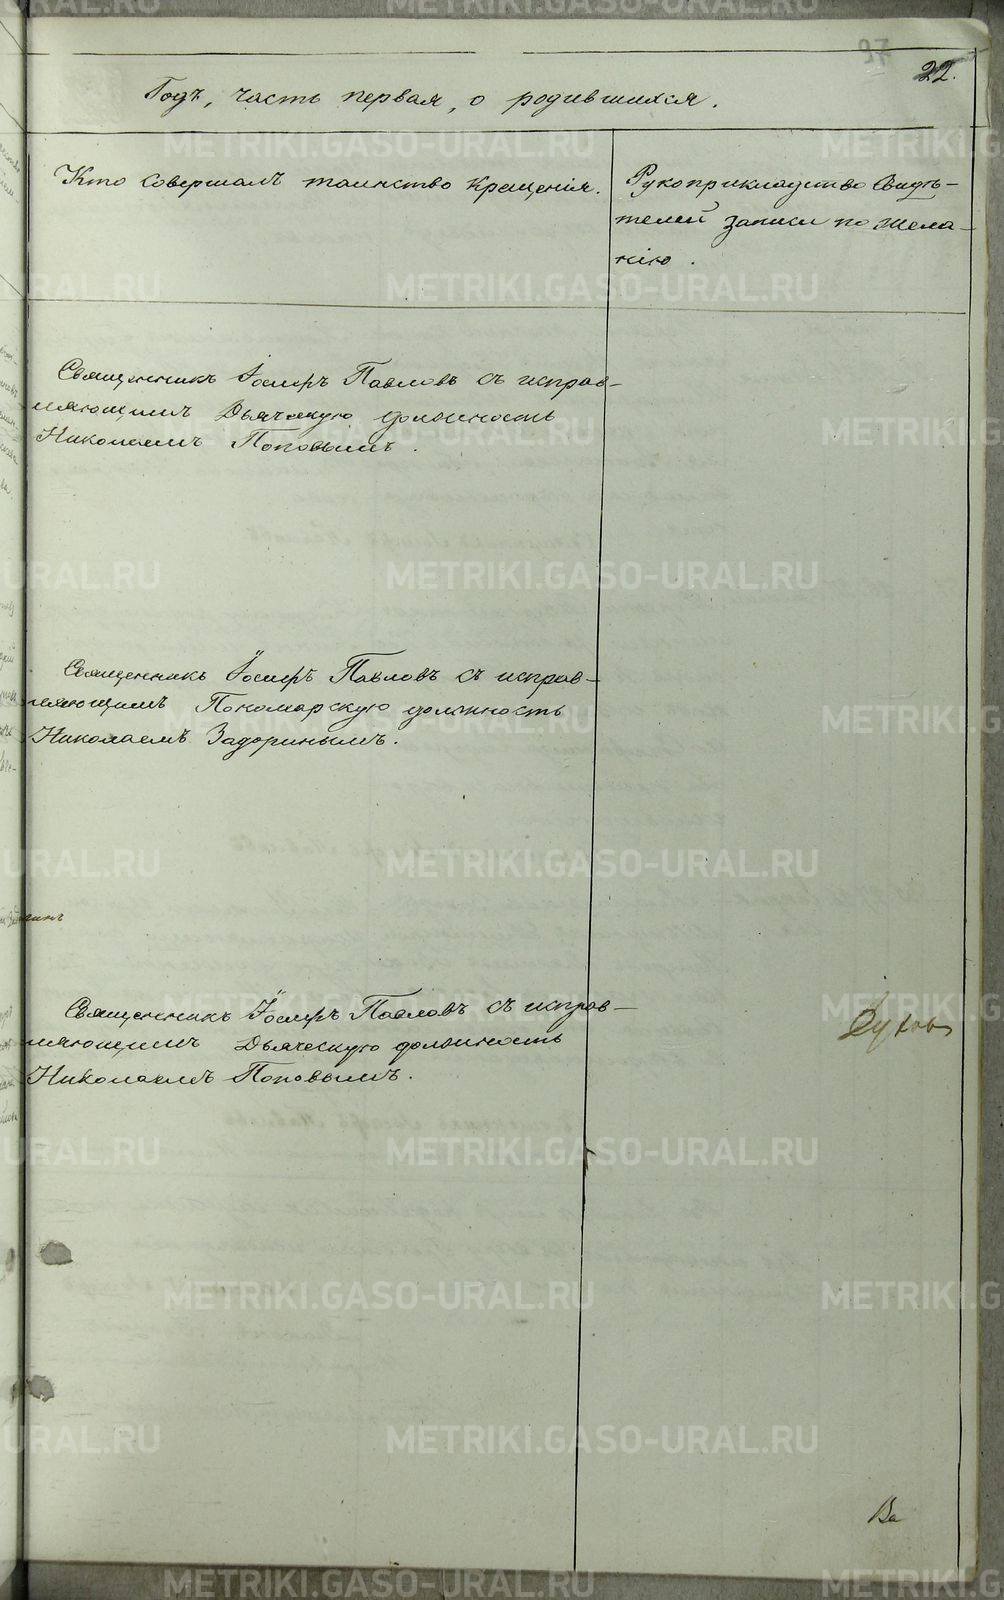 27
22.
Годъ, часть первая, о родившихся.
Кто совершалъ таинство крещенія.
Рукоприкладство свидѣ-
телей записи по жела-
нію.
Священникъ Іосифъ Павловъ съ исправ-
ляющимъ Дьяческую должность
Николаемъ Поповымъ.
Священникъ Іосифъ Павловъ съ исправ-
ляющимъ Пономарскую должность
Николаемъ Задоринымъ.
Священникъ Іосифъ Павловъ съ исправ-
ляющимъ Дьяческую должность
Николаемъ Поповымъ.
Духов
Ва
METRIKI.GASO-URAL.RU